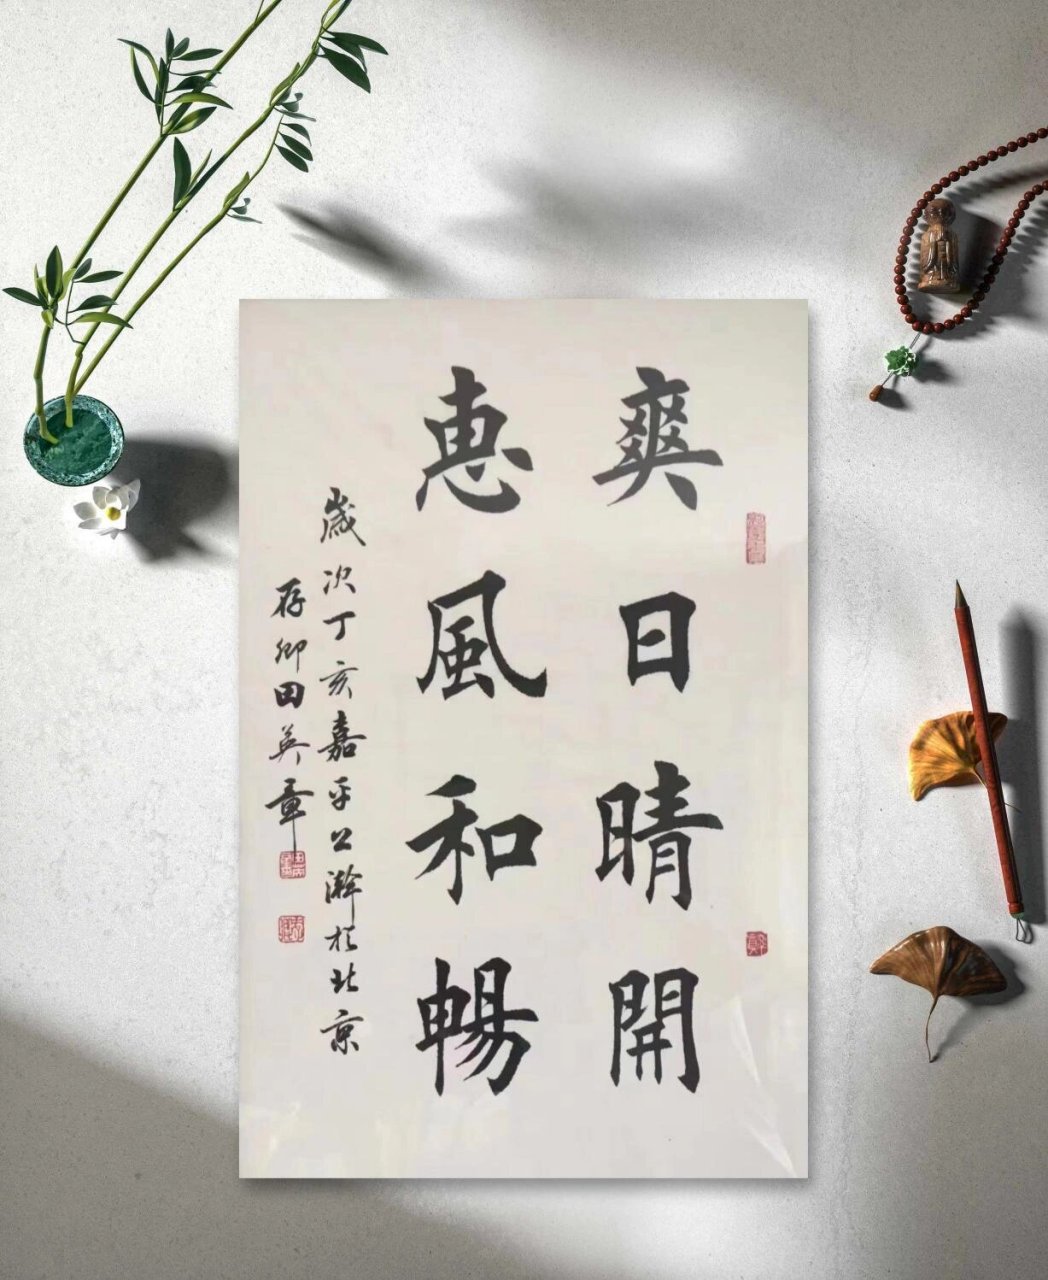 爽日晴開
惠風和暢
歲次丁亥嘉平公瀚於北京
存卿田英章